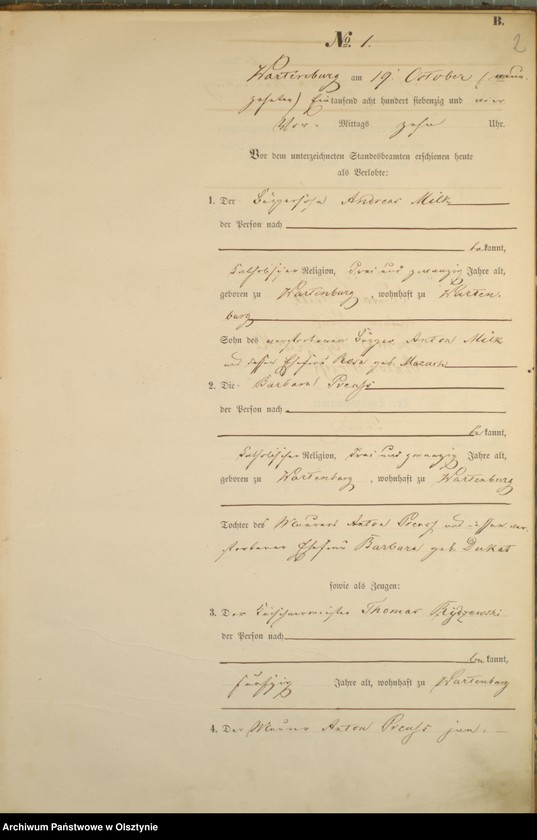 B.
2
No. 1.
Wartenburg am 19. October (neun-
zehnten) Eintausend acht hundert siebenzig und vier
Vor- Mittags zehn Uhr.
Vor dem unterzeichneten Standesbeamten erschienen heute
als Verlobte:
1. Der Bürgersohn Andreas Milk
der Person nach
be kannt,
katholischer Religion, drei und zwanzig Jahre alt,
geboren zu Wartenburg, wohnhaft zu Warten-
burg
Sohn des verstorbenen Bürger Anton Milk
und dessen Ehefrau Rosa geb.
2. Die Barbara Preuß
der Person nach
be kannt,
katholischer Religion, drei und zwanzig Jahre alt,
geboren zu Wartenburg, wohnhaft zu Wartenburg
Tochter des Maurers Anton Preuß und dessen ver-
storbenen Ehefrau Barbara geb. Dukat
sowie als Zeugen:
3. Der Thomas
der Person nach
be kannt,
fünfzig Jahre alt, wohnhaft zu Wartenburg
4. Der Maurer Anton Preuß jun.
Archiwum Państwowe w Olsztynie